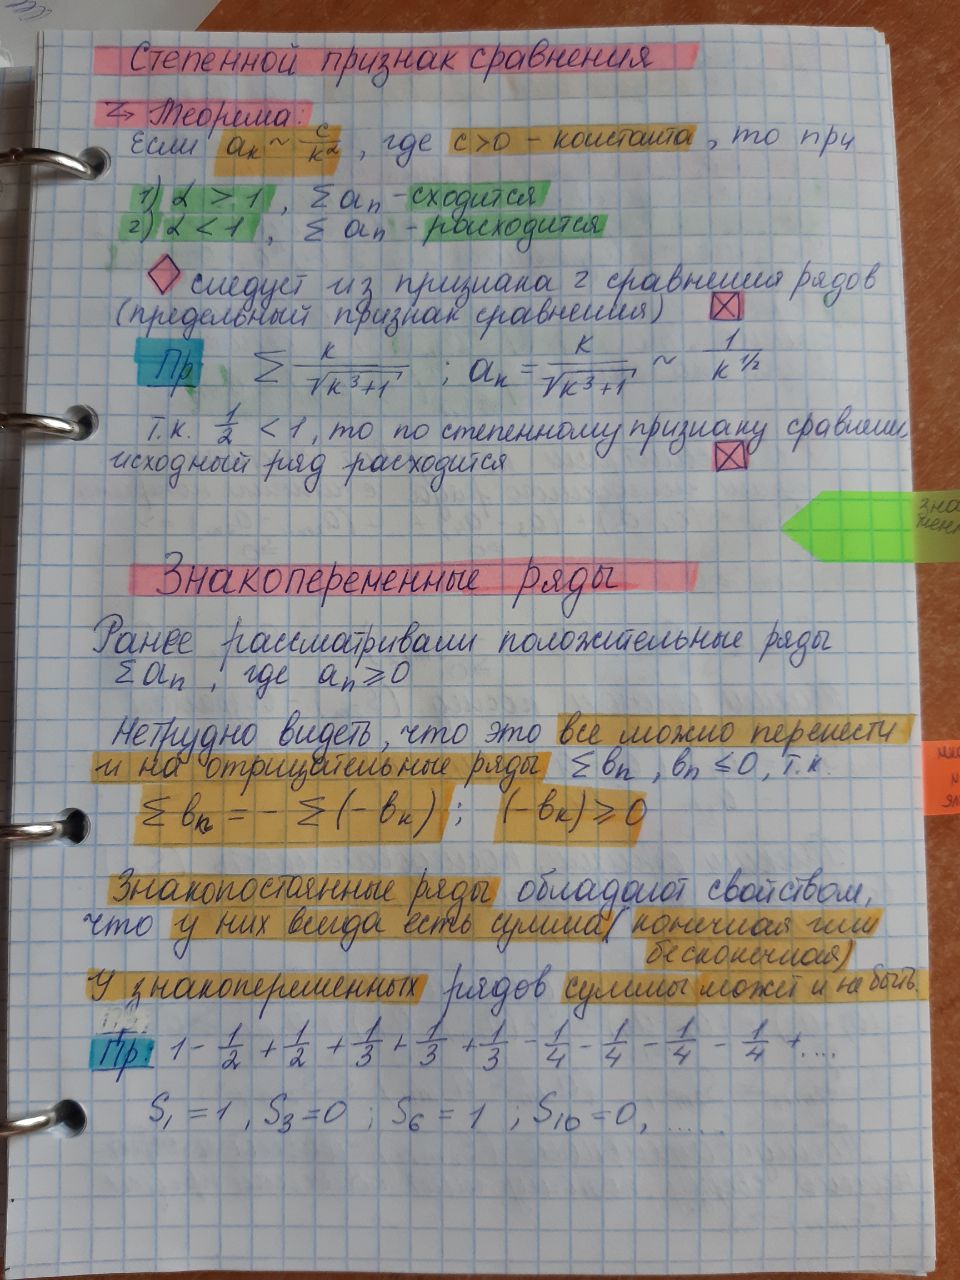 Степенной признак сравнения
Теорема:
Если aₖ ~ c/k^α, где c>0 - константа, то при
1) α > 1, Σ aₙ - сходится
2) α < 1, Σ aₙ - расходится
следует из признака 2 сравнения рядов
(предельный признак сравнения)
Пр Σ k/√(k³+1) ; aₖ = k/√(k³+1) ~ 1/k^(1/2)
Т.к. 1/2 < 1, то по степенному признаку сравнени
исходный ряд расходится
Знакопеременные ряды
Ранее рассматривали положительные ряды
Σ aₙ, где aₙ ≥ 0
Нетрудно видеть, что это все можно перенести
и на отрицательные ряды Σ bₙ, bₙ ≤ 0, т.к.
Σ bₖ = - Σ (-bₖ) ; (-bₖ) ≥ 0
Знакопостоянные ряды обладают свойством,
что у них всегда есть сумма (конечная или
бесконечная)
У знакопеременных рядов суммы может и не быть.
Пр: 1 - 1/2 + 1/2 + 1/3 + 1/3 + 1/3 - 1/4 - 1/4 - 1/4 - 1/4 + ....
S₁ = 1, S₃ = 0 ; S₆ = 1 ; S₁₀ = 0, .....